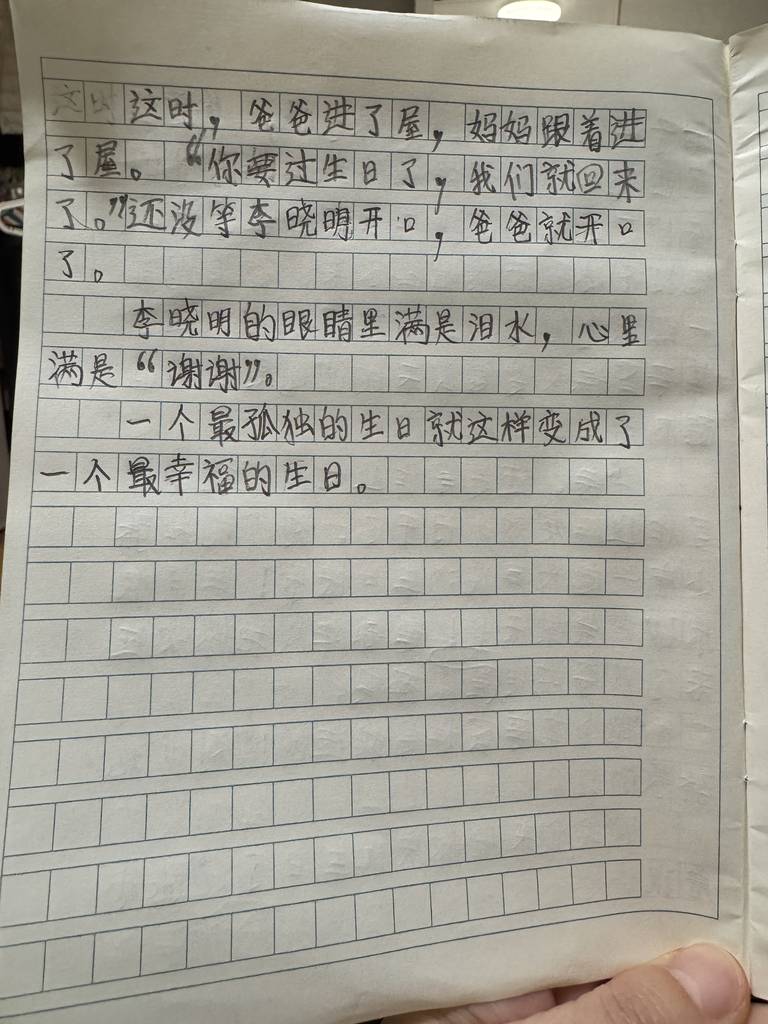 这时这时，爸爸进了屋，妈妈跟着进
了屋。“你要过生日了，我们就回来
了。”还没等李晓明开口，爸爸就开口
了。
李晓明的眼睛里满是泪水，心里
满是“谢谢”。
一个最孤独的生日就这样变成了
一个最幸福的生日。